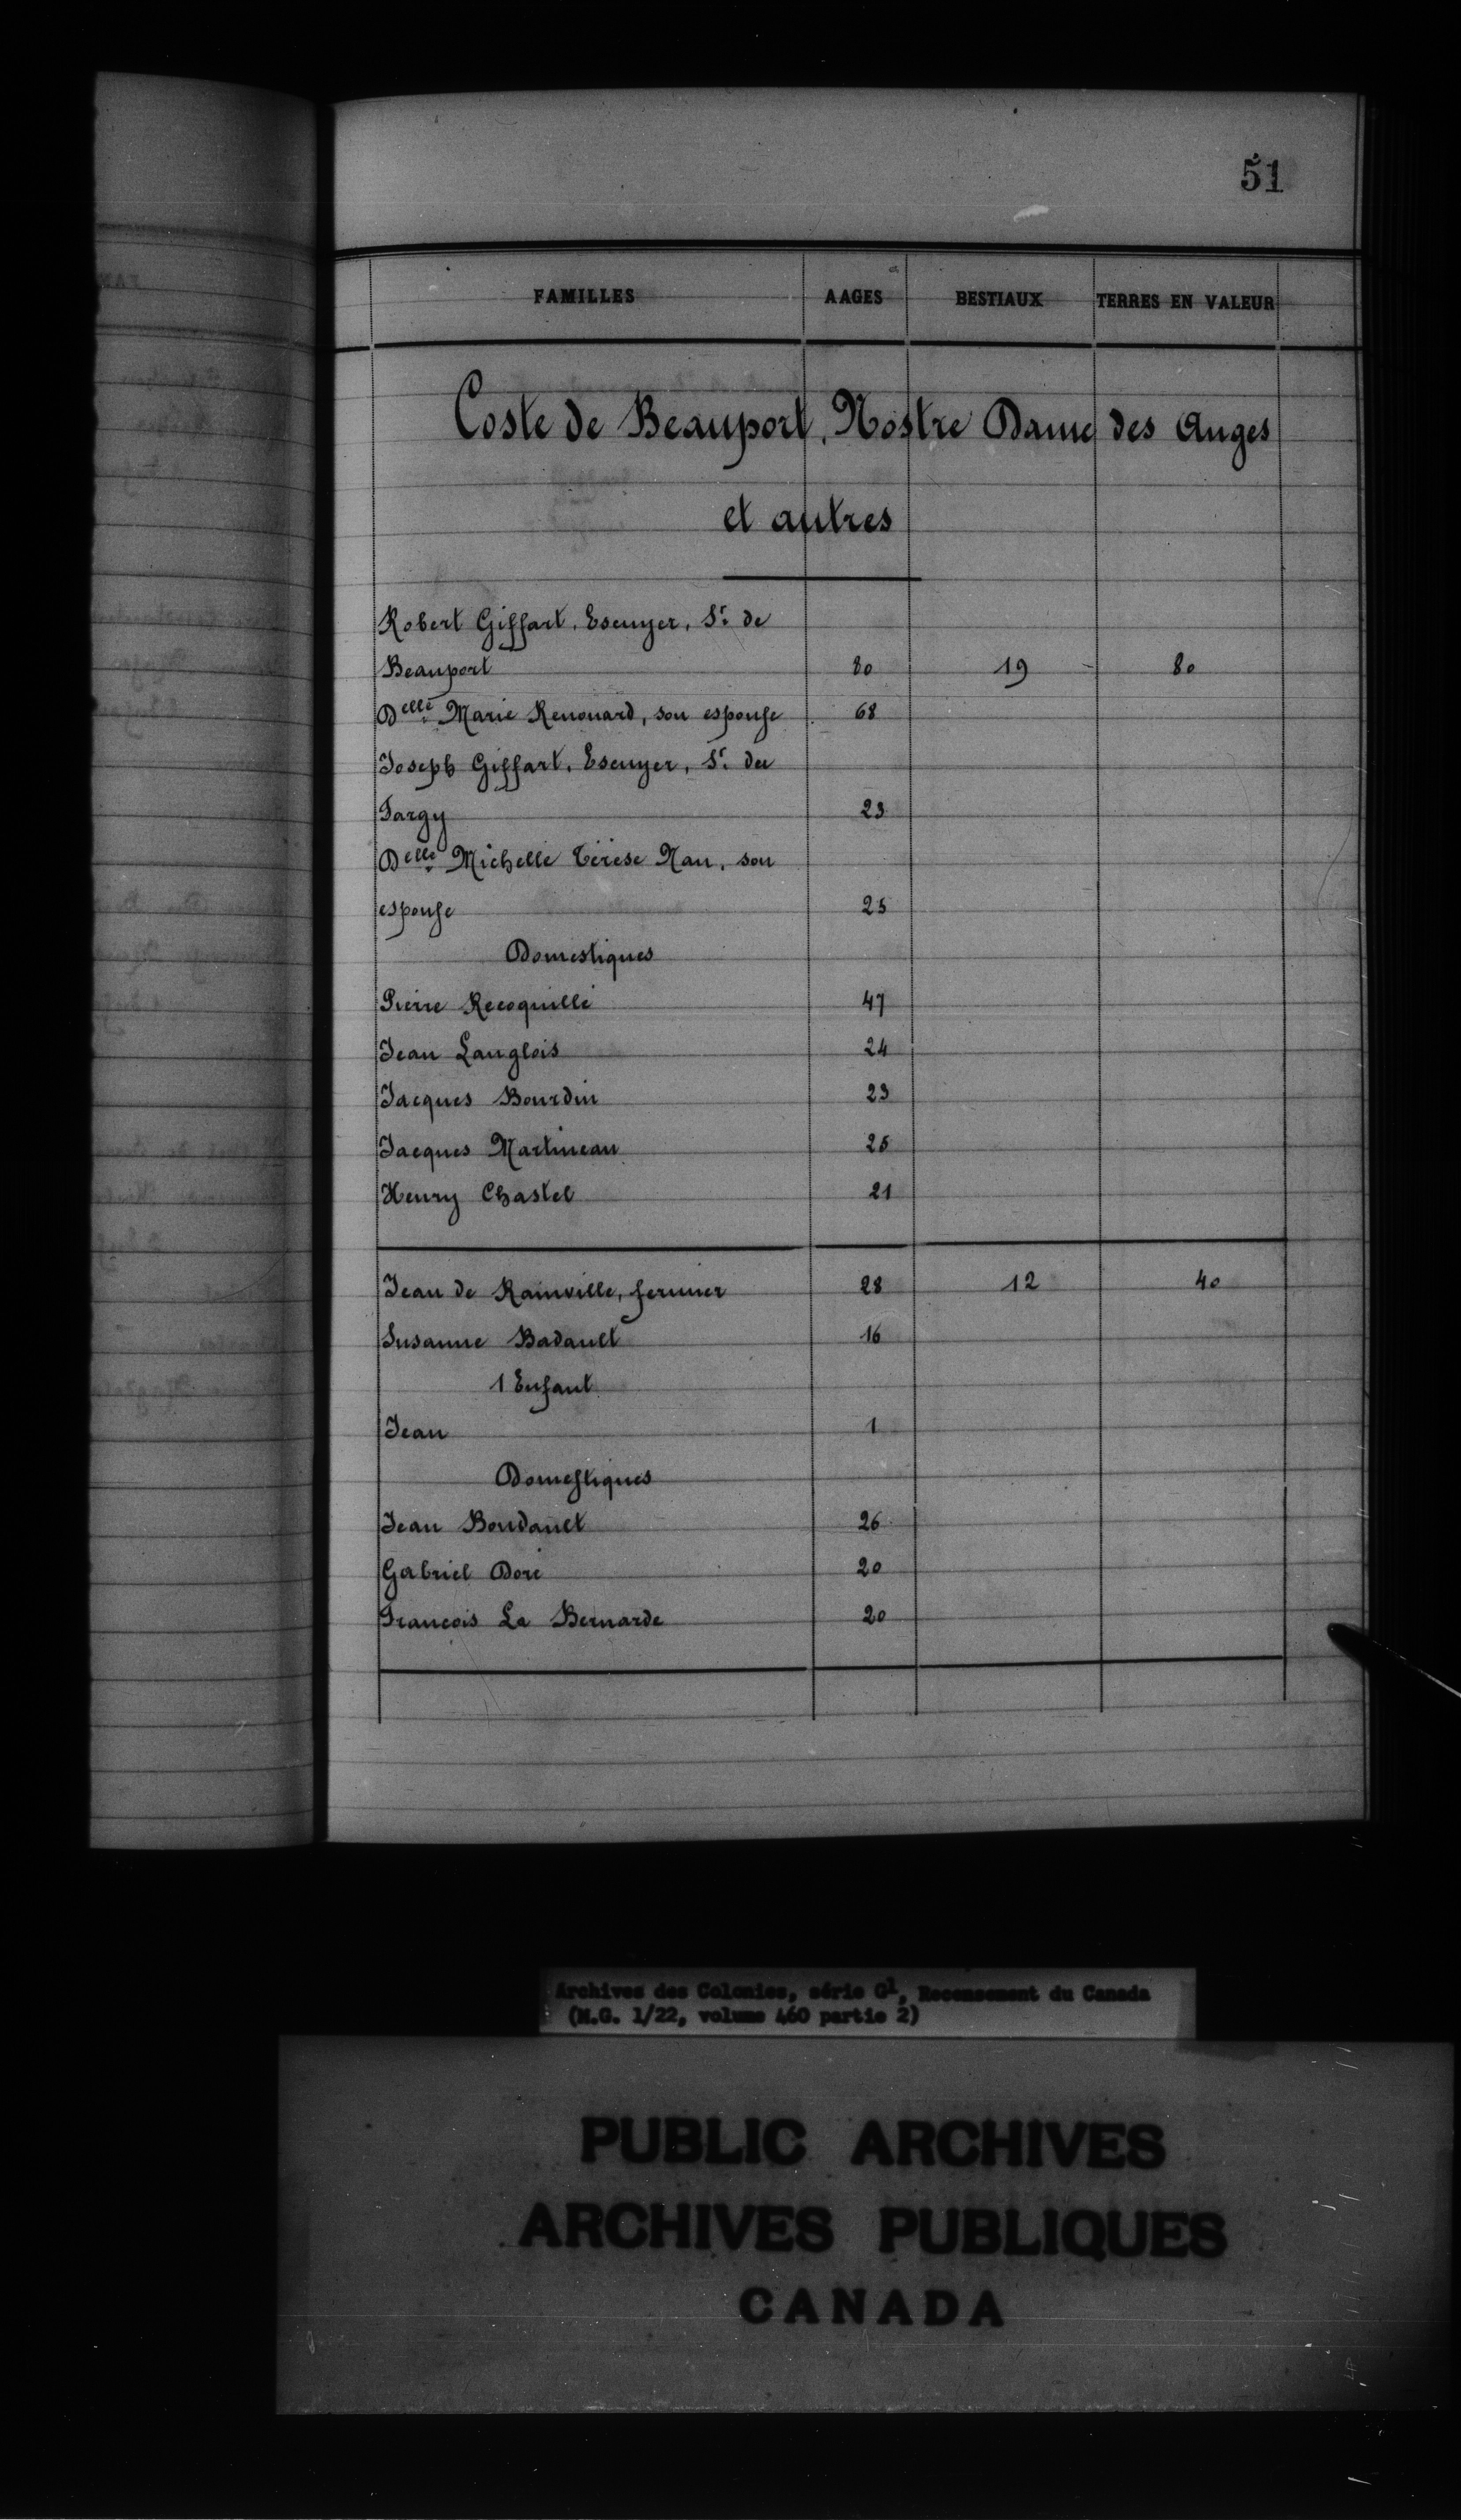 51
FAMILLES AAGES BESTIAUX TERRES EN VALEUR
Coste de Beauport, Nostre Dame des Anges
et autres
Robert Giffart, Escuyer, Sr. de
Beauport 80 19 80
Delle. Marie Renouard, son espouse 68
Joseph Giffart, Escuyer, Sr. du
Fargy 23
Delle. Michelle Térèse Nau, son
espouse 25
Domestiques
Pierre Recoquillé 47
Jean Langlois 24
Jacques Bourdin 23
Jacques Martineau 25
Henry Chastel 21
Jean de Rainville, fermier 28 12 40
Susanne Badault 16
1 Enfant
Jean 1
Domestiques
Jean Boudault 26
Gabriel Doré 20
Francois La Bernarde 20
Archives des Colonies, série G1, Recensement du Canada
(M.G. 1/22, volume 460 partie 2)
PUBLIC ARCHIVES
ARCHIVES PUBLIQUES
CANADA